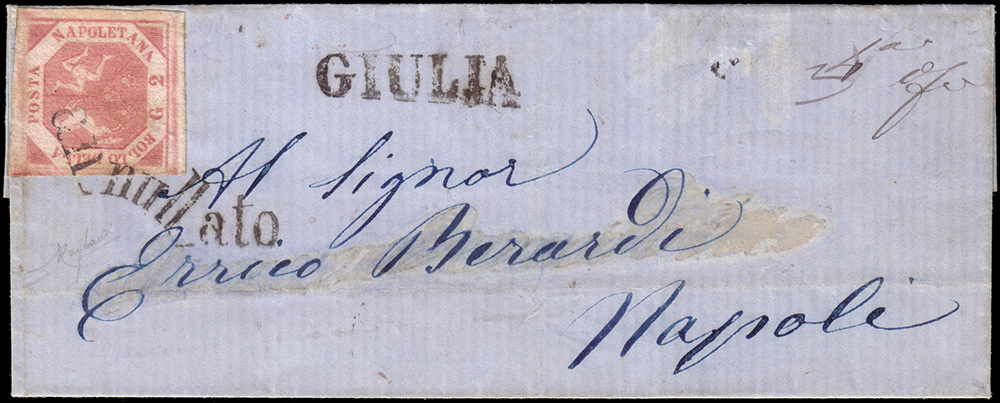 POSTA NAPOLETANA
G 2
GIULIA
Annullato
Al Signor
Errico Berardi
Napoli